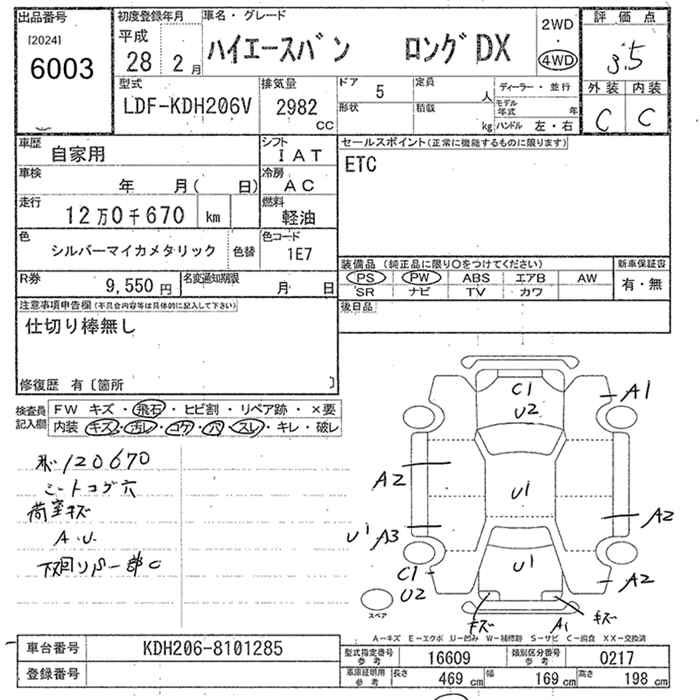 出品番号
[2024]
6003
初度登録年月
平成
28 2月
車名・グレード
ハイエースバン ロングDX
2WD
4WD
評価点
3.5
外装 内装
C C
型式
LDF-KDH206V
排気量
2982
CC
ドア 5
形状
定員
人
積載
kg
ディーラー・並行
モデル年式 年
ハンドル 左・右
車歴
自家用
シフト
IAT
車検
年 月( 日)
冷房
AC
走行
12万0千670 km
燃料
軽油
色
シルバーマイカメタリック 色替
色コード
1E7
R券
9,550円
名変通知期限
月 日
セールスポイント(正常に機能するものに限ります)
ETC
装備品(純正品に限り○をつけてください)
PS PW ABS エアB AW
SR ナビ TV カワ
新車保証書
有・無
後日品
注意事項申告欄(不具合内容等は具体的に記入して下さい)
仕切り棒無し
修復歴 有〔箇所 〕
検査員記入欄
FW キズ・飛石・ヒビ割・リペア跡・×要
内装 キズ・汚レ・コゲ・穴・スレ・キレ・破レ
120670
シートコゲ穴
荷室キズ
A.U
C1
U2
A1
A2
U1
A2
U1 A3
C1
U2
U1
A2
キズ
A1
キズ
スペア
A-キズ E-エクボ U-凹み W-補修跡 S-サビ C-腐食 XX-交換済
車台番号 KDH206-8101285
登録番号
型式指定番号参考 16609
類別区分番号参考 0217
車庫証明用参考 長さ 469 cm 幅 169 cm 高さ 198 cm